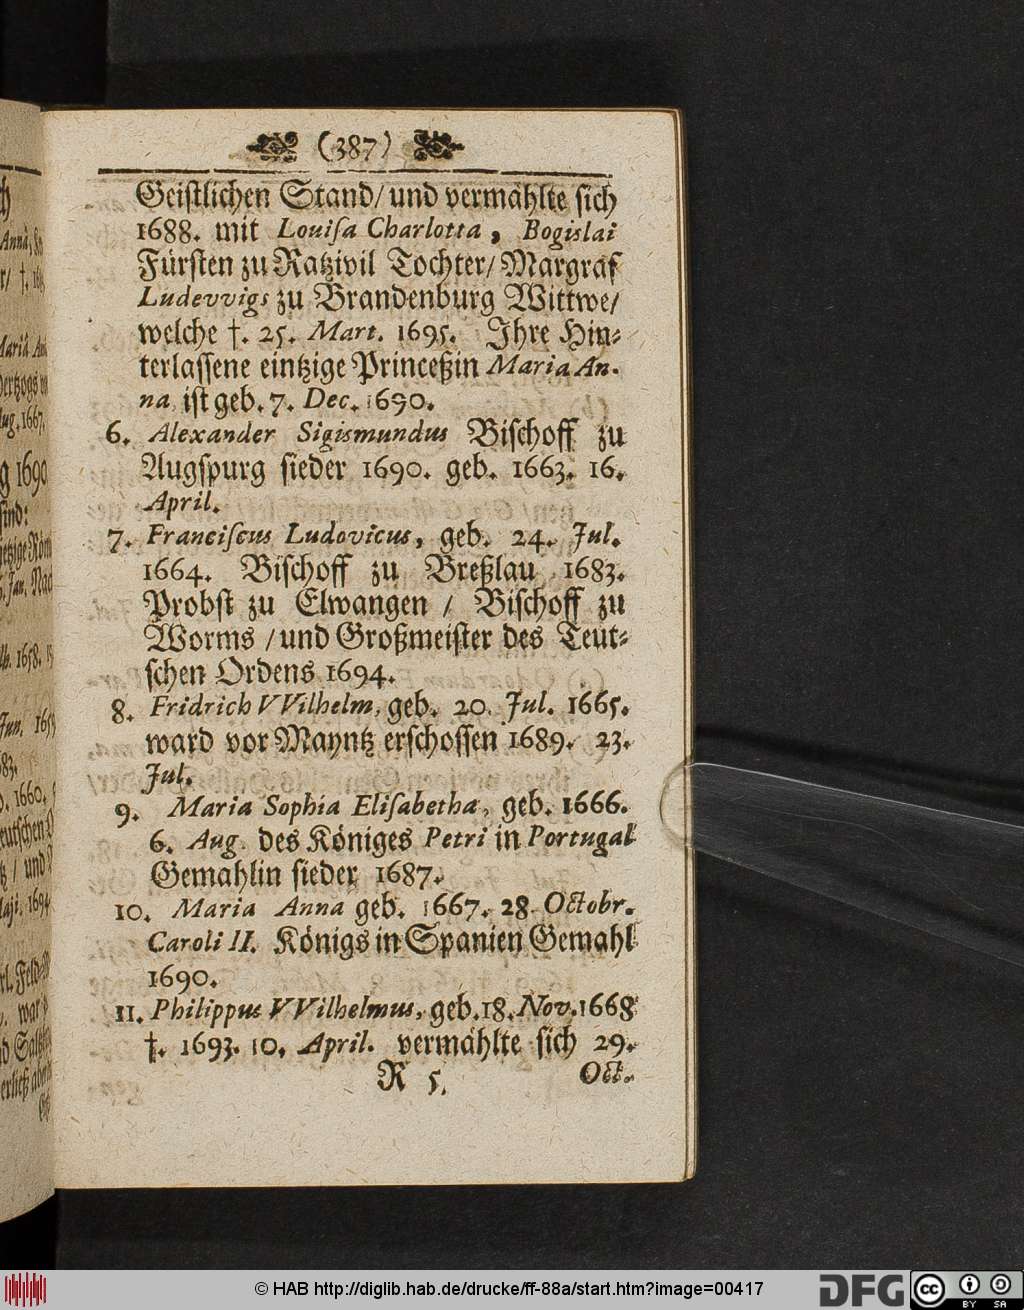 (387)
Geistlichen Stand/ und vermählte sich
1688. mit Louiſa Charlotta, Bogislai
Fürsten zu Ratzivil Tochter/ Margraf
Ludevvigs zu Brandenburg Wittwe/
welche †. 25. Mart. 1695. Ihre Hin-
terlassene eintzige Princeßin Maria An-
na ist geb. 7. Dec. 1690.
6. Alexander Sigismundus Bischoff zu
Augspurg sieder 1690. geb. 1663. 16.
April.
7. Franciſcus Ludovicus, geb. 24. Jul.
1664. Bischoff zu Breßlau 1683.
Probst zu Elwangen / Bischoff zu
Worms / und Großmeister des Teut-
schen Ordens 1694.
8. Fridrich VVilhelm, geb. 20. Jul. 1665.
ward vor Mayntz erschossen 1689. 23.
Jul.
9. Maria Sophia Eliſabetha, geb. 1666.
6. Aug. des Königes Petri in Portugal
Gemahlin sieder 1687.
10. Maria Anna geb. 1667. 28. Octobr.
Caroli II. Königs in Spanien Gemahl
1690.
11. Philippus VVilhelmus, geb. 18. Nov. 1668
†. 1693. 10. April. vermählte sich 29.
R 5. Oct.
© HAB http://diglib.hab.de/drucke/ff-88a/start.htm?image=00417
DFG
cc BY SA